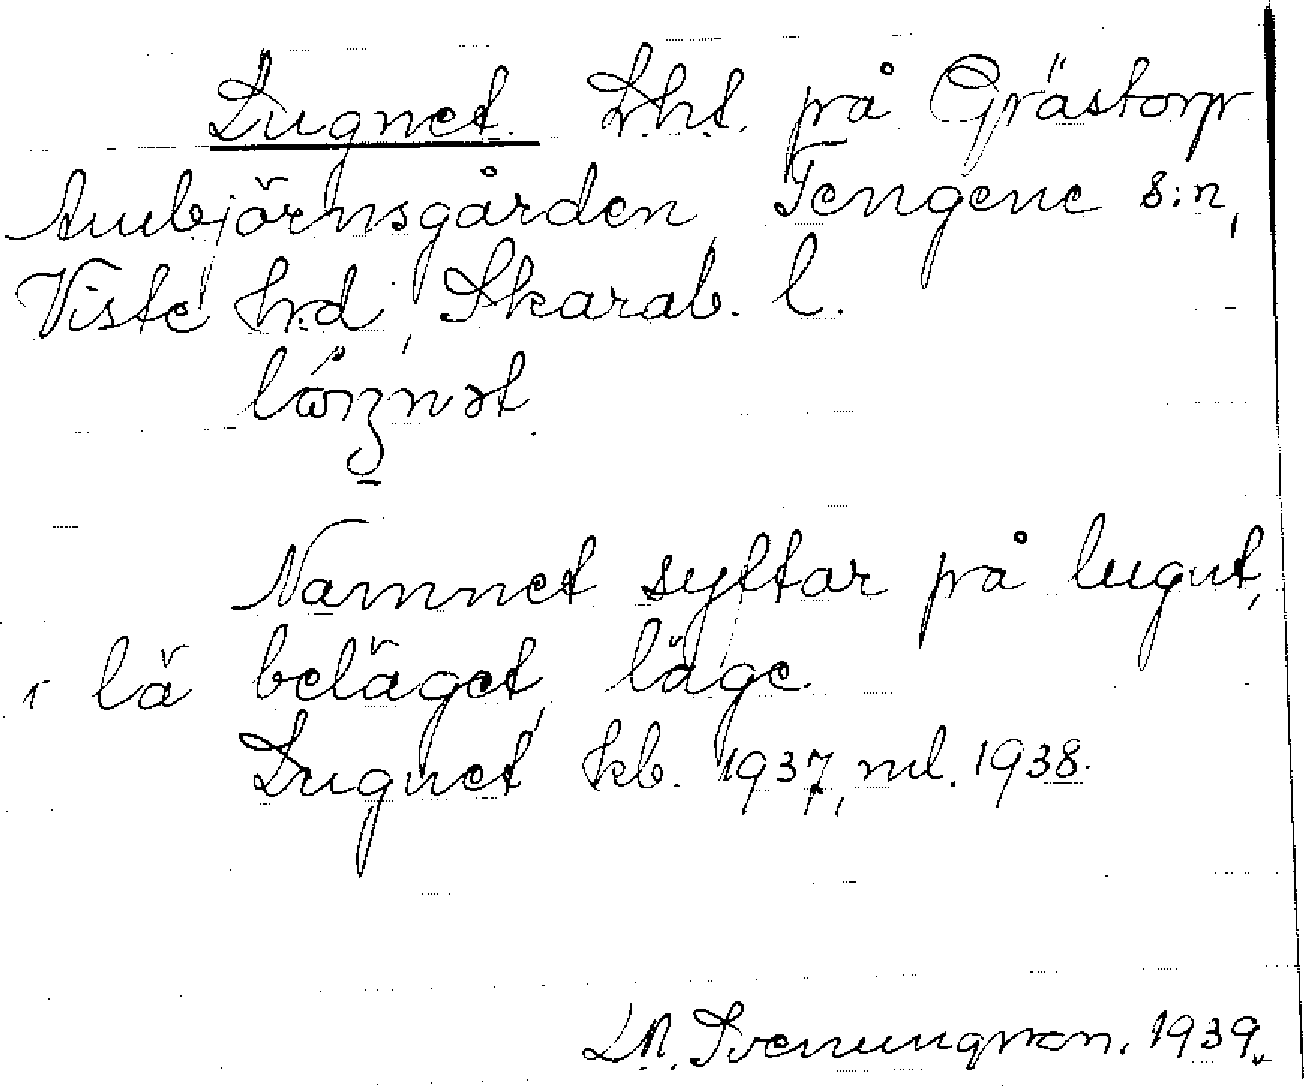 Lugnet. Lht. på Grästorp
Ambjörnsgården, Tengene s:n,
Viste hrd, Skarab. l.
Namnet syftar på lugnt,
i lä beläget, läge.
Lugnet kb. 1937, ml. 1938.
Svenungsson. 1939.